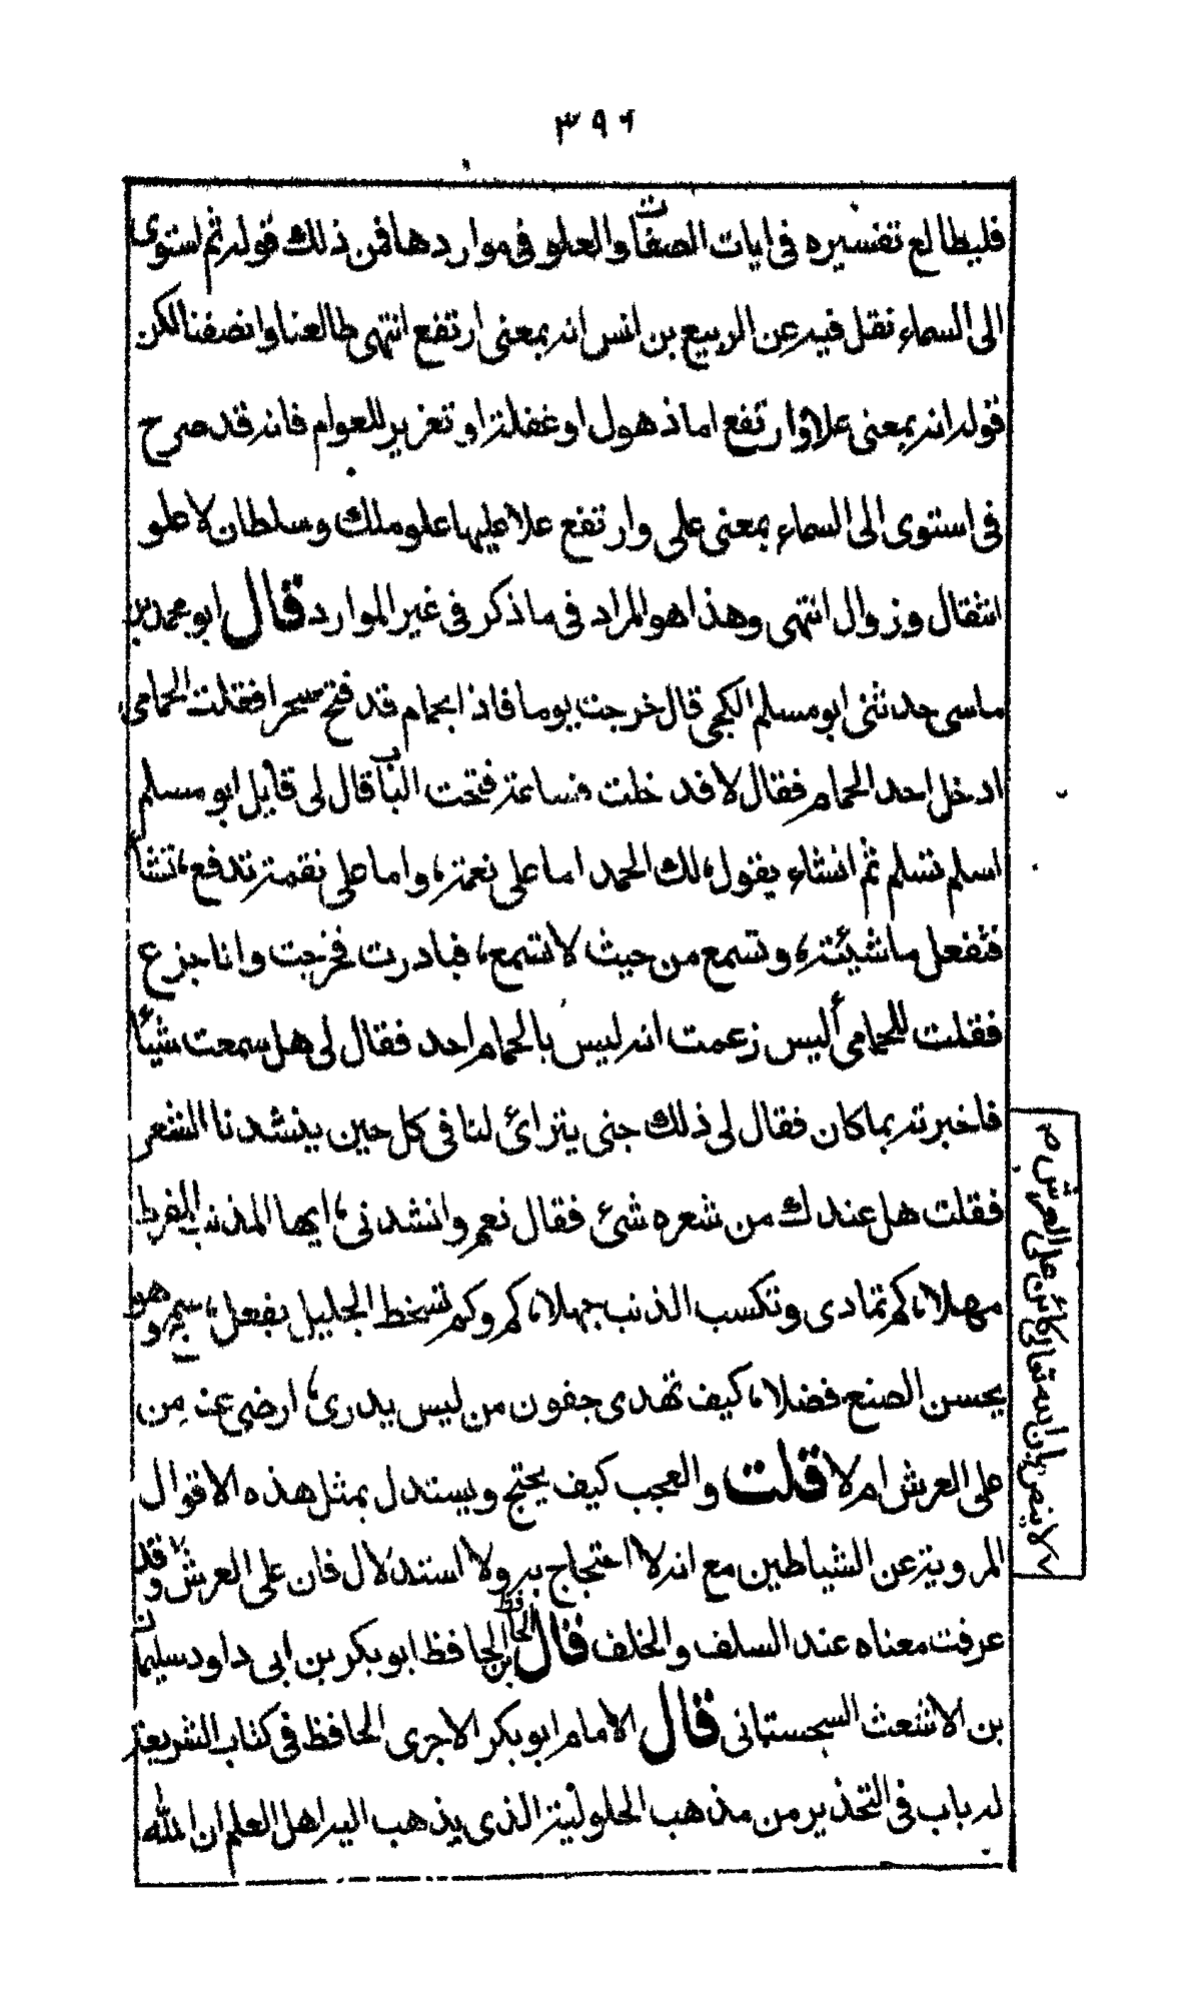 ٣٩٦
فليطالع تفسيره في ايات الصفات والعلو في مواردها فمن ذلك قوله ثم استوى
الى السماء نقل فيه عن الربيع بن انس انه بمعنى ارتفع انتهى طالعنا وانصفنا لكن
قوله انه بمعنى علا وارتفع اما ذهول او غفلة او تغرير للعوام فانه قد صرح
في استوى الى السماء بمعنى على وارتفع علا عليها علو ملك وسلطان لا علو
انتقال وزوال انتهى وهذا هو المراد في ما ذكر في غير الموارد قال ابو محمد بن
ماسى حدثنى ابو مسلم الكجى قال خرجت يوما فاذا بحمام قد فتح سحرا فقلت الحمامى
ادخل احد الحمام فقال لا فدخلت فساعة فتحت الباب قال لى قايل ابو مسلم
اسلم تسلم ثم انشاء يقول، لك الحمد اما على نعمة، واما على نقمة تدفع، تشأ
فتفعل ما شيئته، وتسمع من حيث لا تسمع، فبادرت فخرجت وانا جزع
فقلت للحمامى أليس زعمت انه ليس بالحمام احد فقال لى هل سمعت شيأ
فاخبرته بما كان فقال لى ذلك جنى يترائ لنا في كل حين ينشدنا الشعر
فقلت هل عندك من شعره شئ فقال نعم وانشدنى، ايها المذنب المفرط
مهلا، كم تمادى وتكسب الذنب جهلا، كم وكم تسخط الجليل بفعل، سمج وهو
يحسن الصنع فضلا، كيف تهدى جفون من ليس يدرى، ارضى عنه مِن
على العرش ام لا قلت والعجب كيف يحتج ويستدل بمثل هذه الاقوال
المروية عن الشياطين مع انه لا احتجاج به ولا استدلال فان على العرش وقد
عرفت معناه عند السلف والخلف قال الحافظ بن الحافظ ابو بكر بن ابى داود سليمان
بن الاشعث السجستانى قال الامام ابو بكر الاجرى الحافظ في كتاب الشريعة
له باب في التحذير من مذهب الحلولية الذى يذهب اليه اهل العلم ان الله
لا ينص بان الله تعالى كائن على العرش م